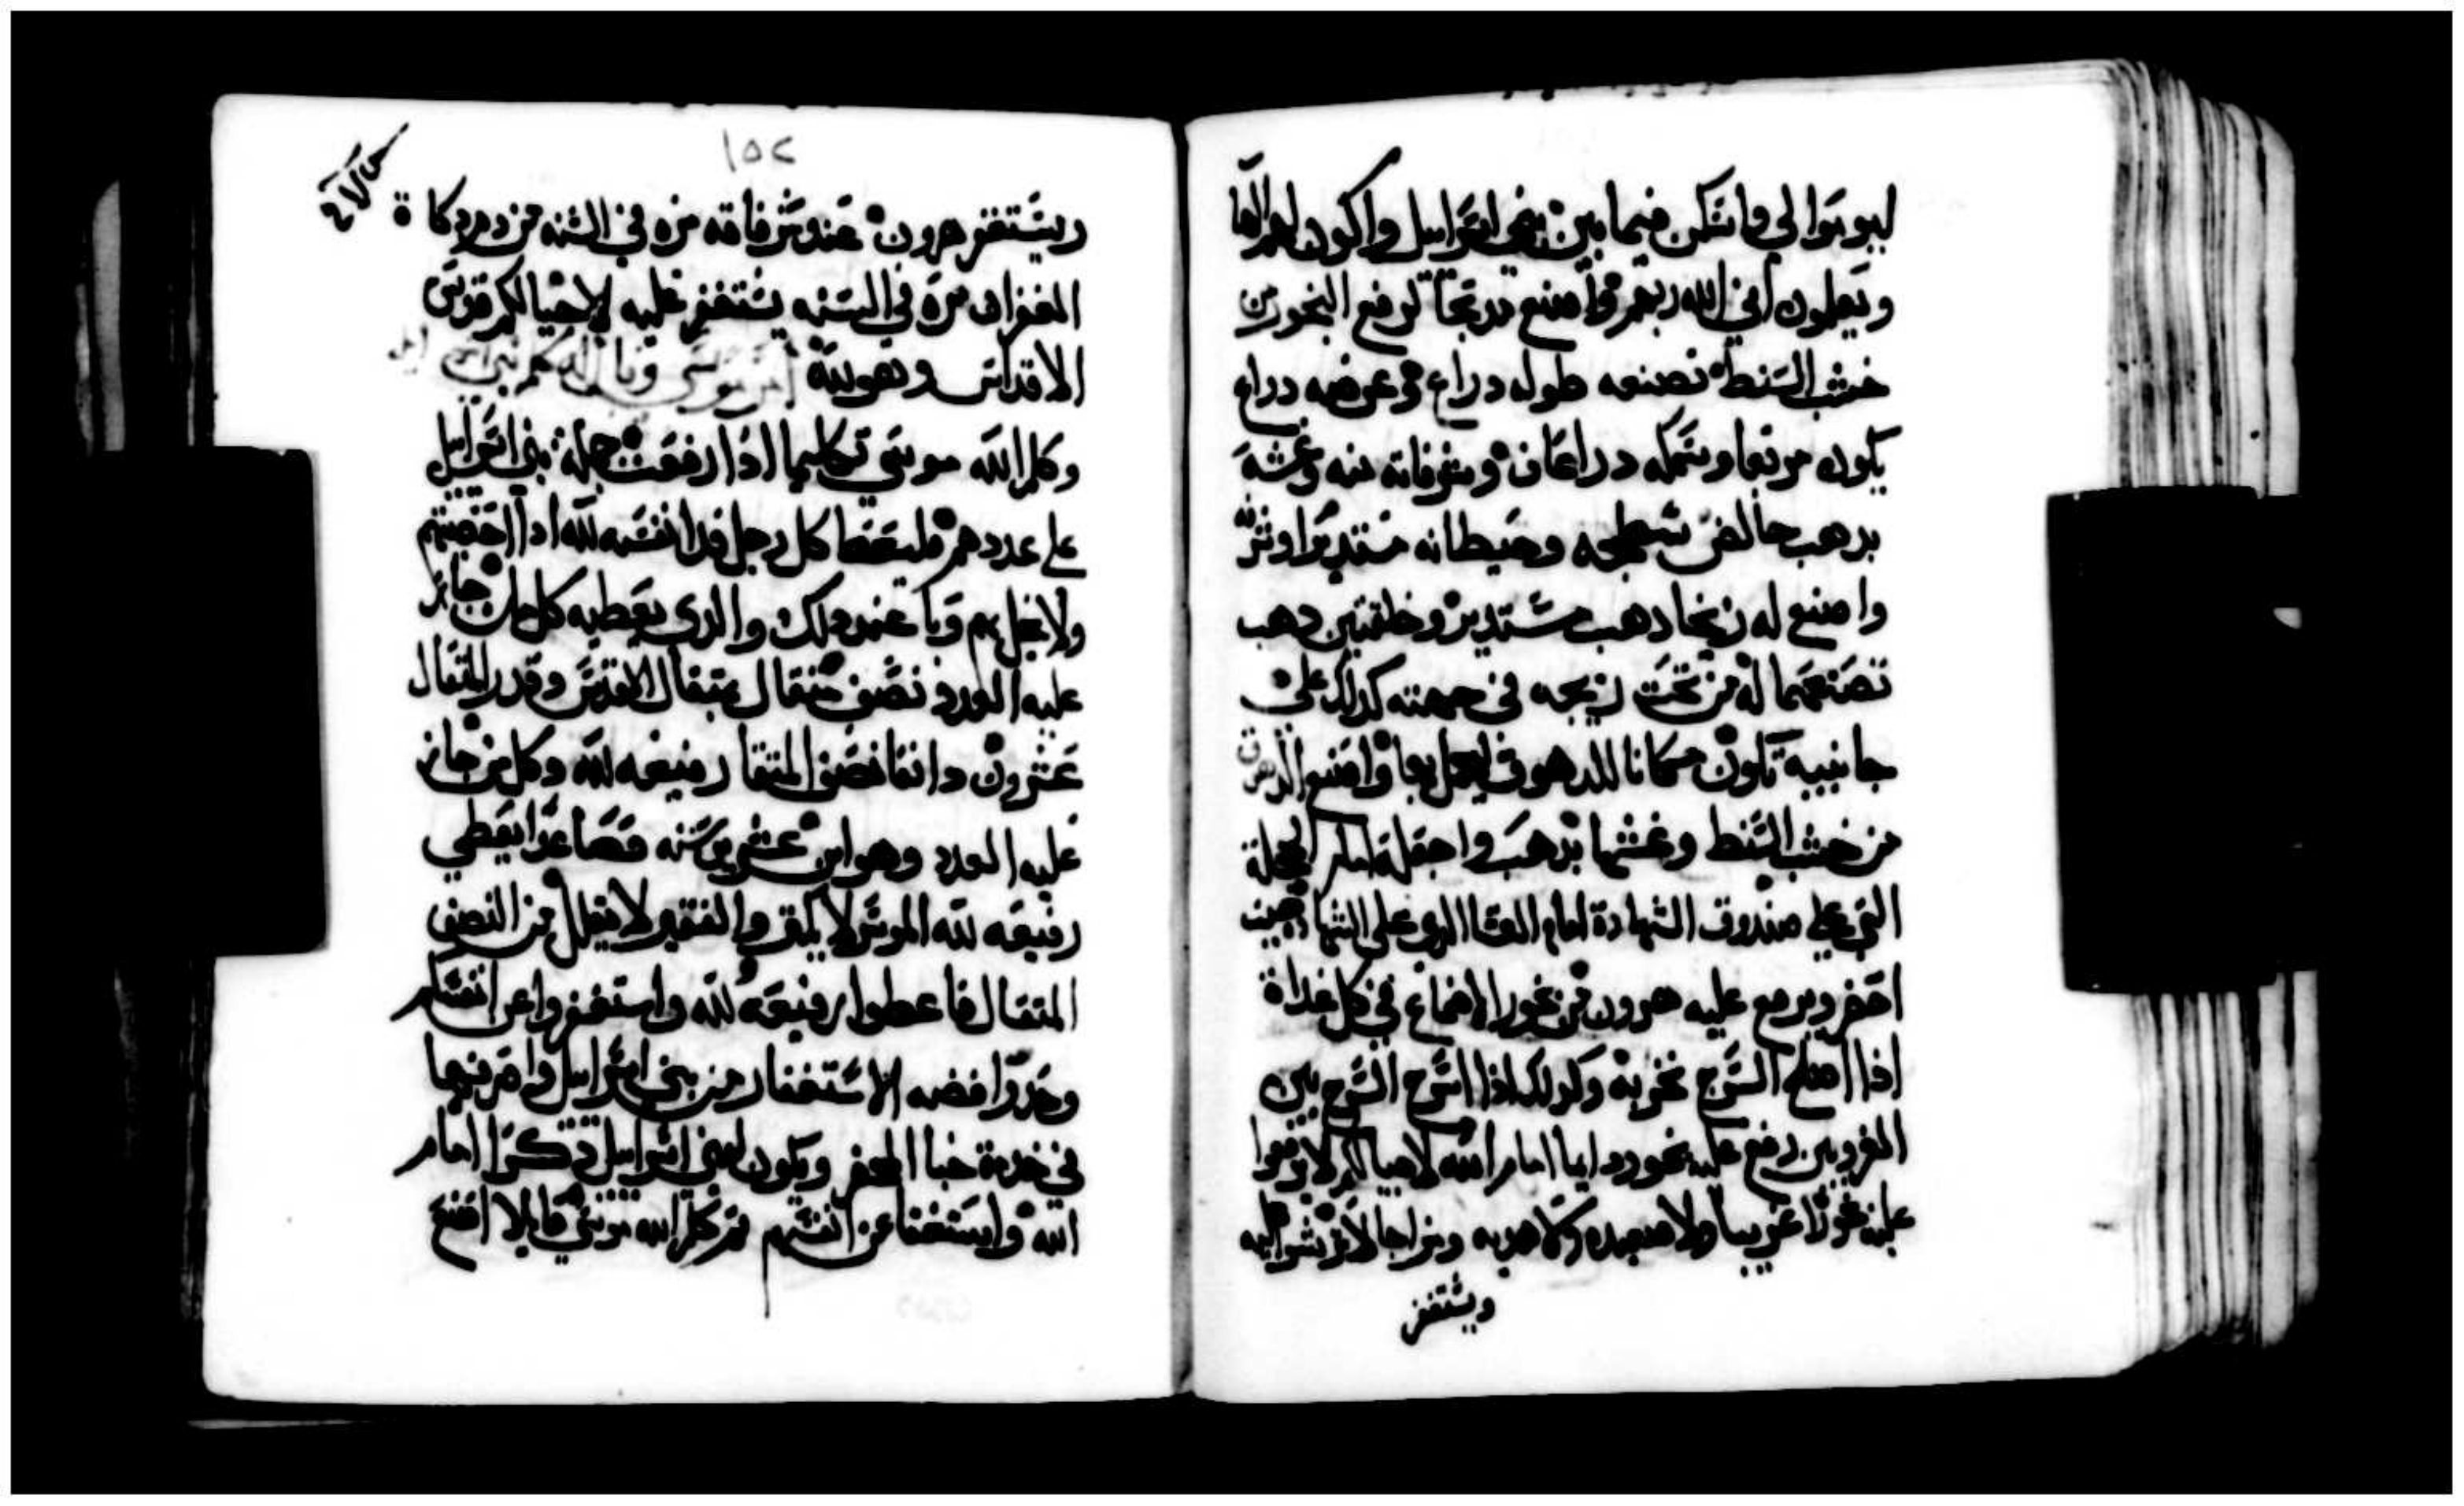 ليؤمنوا لي واسكن فيما بين بني اسراييل واكون لهم الاها
ويعلمون اني الله ربهم واصنع مدبحا لرفع البخور من
خشب السنط تصنعه طوله دراع وعرضه دراع
يكون مربعا وسمكه دراعان وشرفاته منه وغشه
بدهب خالص سطحه وحيطانه مستديرا وشرفه
واصنع له زيجا دهب مستدير وحلقتين دهب
تصنعهما له من تحت زيجه في جهته كدلك على
جانبيه تكون مكانا للدهوق ليحمل بها واصنع الدهوق
من خشب السنط وغشها بدهب واجعله امام الحجلة
التي على صندوق الشهادة امام الغشا الدي على الشهاده حيث
احضر ويرفع عليه هرون من بخور الاصماغ في كل غداة
اذا اصلح السرج بخر به وكدلك اذا اسرج السرج بين
الغروبين رفع عليه بخور دايما امام الله لاجيالكم لا ترفعوا
عليه بخورا غريبا ولا صعيده ولا هديه ومزاجا لا ترشوا عليه
ويستغفر
١٥٢
ويستغفر هرون عند شرفاته مره في السنه من دم زكاة
الغفران مره في السنه يستغفر عليه لاجيالكم قدس
الاقداس وهو لله
وكلم الله موسى تكليما اذا رفعت جملة بني اسراييل
على عددهم فليعطا كل رجل فدا نفسه لله اذا احصيتهم
ولا يحل بهم وبا عند دلك والدي يعطيه كل من جاز
عليه العدد نصف متقال بمتقال القدس وقدر المتقال
عشرون دانقا نصف المتقال رفيعه لله وكل من جاز
عليه العدد وهو ابن عشرين سنه فصاعدا يعطي
رفيعه لله الموسر لا يكثر والفقير لا يقلل من النصف
المتقال فاعطوا رفيعه لله واستغفروا عن انفسكم
وخدوا فضه الاستغفار من بني اسراييل واصرفها
في خدمة خبا المحضر ويكون لبني اسراييل ذكرا امام
الله وليستغفا عن انفسهم ثم كلم الله موسى قايلا اصنع